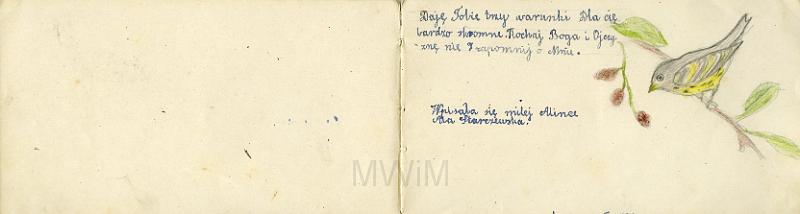 Daję Tobie trzy warunki Dla cię
bardzo skromne. Kochaj Boga i Ojczy-
znę nie Zapomnij o Mnie.
Wpisała się miłej Alince
Ada Starczewska.
MWiM